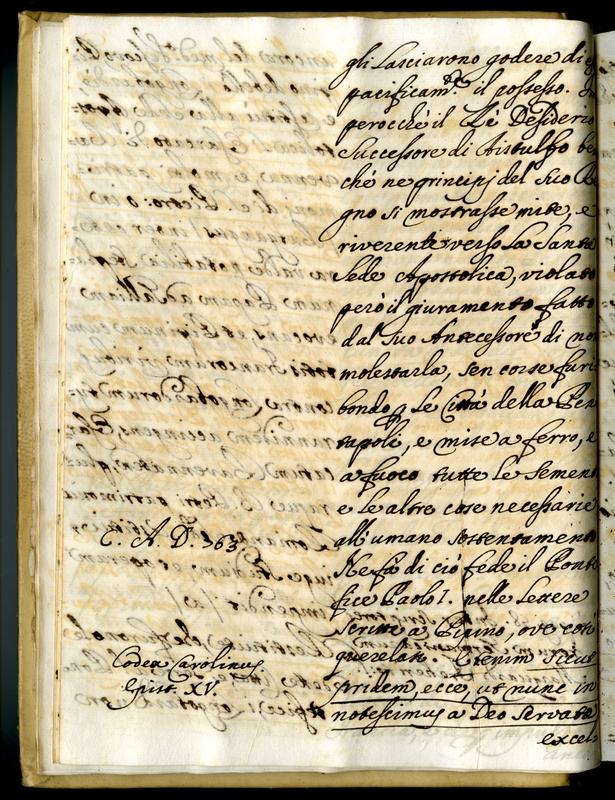 gli lasciarono godere di
pacificam.te il possesso.
perocchè il Ré Desiderio
Successore di Aistulfo be
chè ne principj del suo Re
gno si mostrasse mite, e
riverente verso la Santa
Sede Apostolica, violato
però il giuramento fatto
dal suo Antecessore di non
molestarla, sen corse furi
bondo p le Città della Pen
tapoli, e mise a ferro, e
a fuoco tutte le sement
e le altre cose necessarie
all'umano sostentamento
C. A. D. 763.
Ne fà di ció fede il Ponte
fice Paolo I. nelle Lettere
scritte a Pipino, ove così
Codex Carolinus
querelasi. Etenim sicut
Epist. XV.
pridem, ecce, ut nunc in
notescimus a Deo servatæ
excel